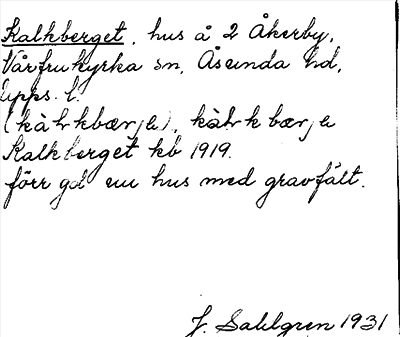 Kalkberget, hus å 2 Åkerby,
Vårfrukyrka sn, Åsunda hd,
Upps. l.
(kàłkbærje), kàłkbærje
Kalkberget kb 1919.
förr gd nu hus med gravfält.
J. Sahlgren 1931